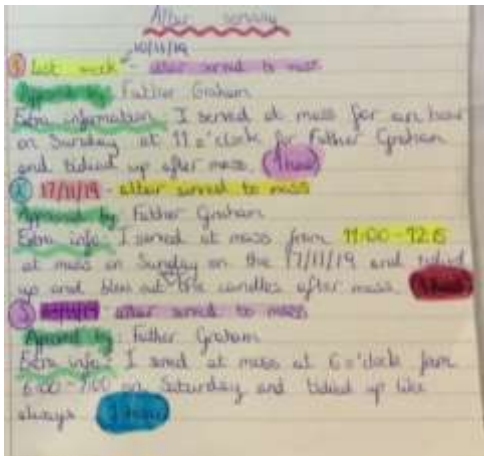 Alter serving
10/11/19
① Last week - alter served to mass
Approved by: Father Graham
Extra information: I served at mass for an hour
on Sunday at 11 o'clock for Father Graham
and tidied up after mass. (1 hour)
② 17/11/19 - alter served to mass
Approved by: Father Graham
Extra info: I served at mass from 11:00 - 12:15
at mass on Sunday on the 17/11/19 and tidied
up and blew out the candles after mass. (1 hour)
③ alter served to mass
Approved by: Father Graham
Extra info: I served at mass at 6 o'clock from
6:00 - 7:00 on Saturday and tidied up like
always (1 hour)